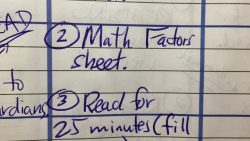 EAD
② Math Factors
sheet.
to
rdians
③ Read for
25 minutes (fill